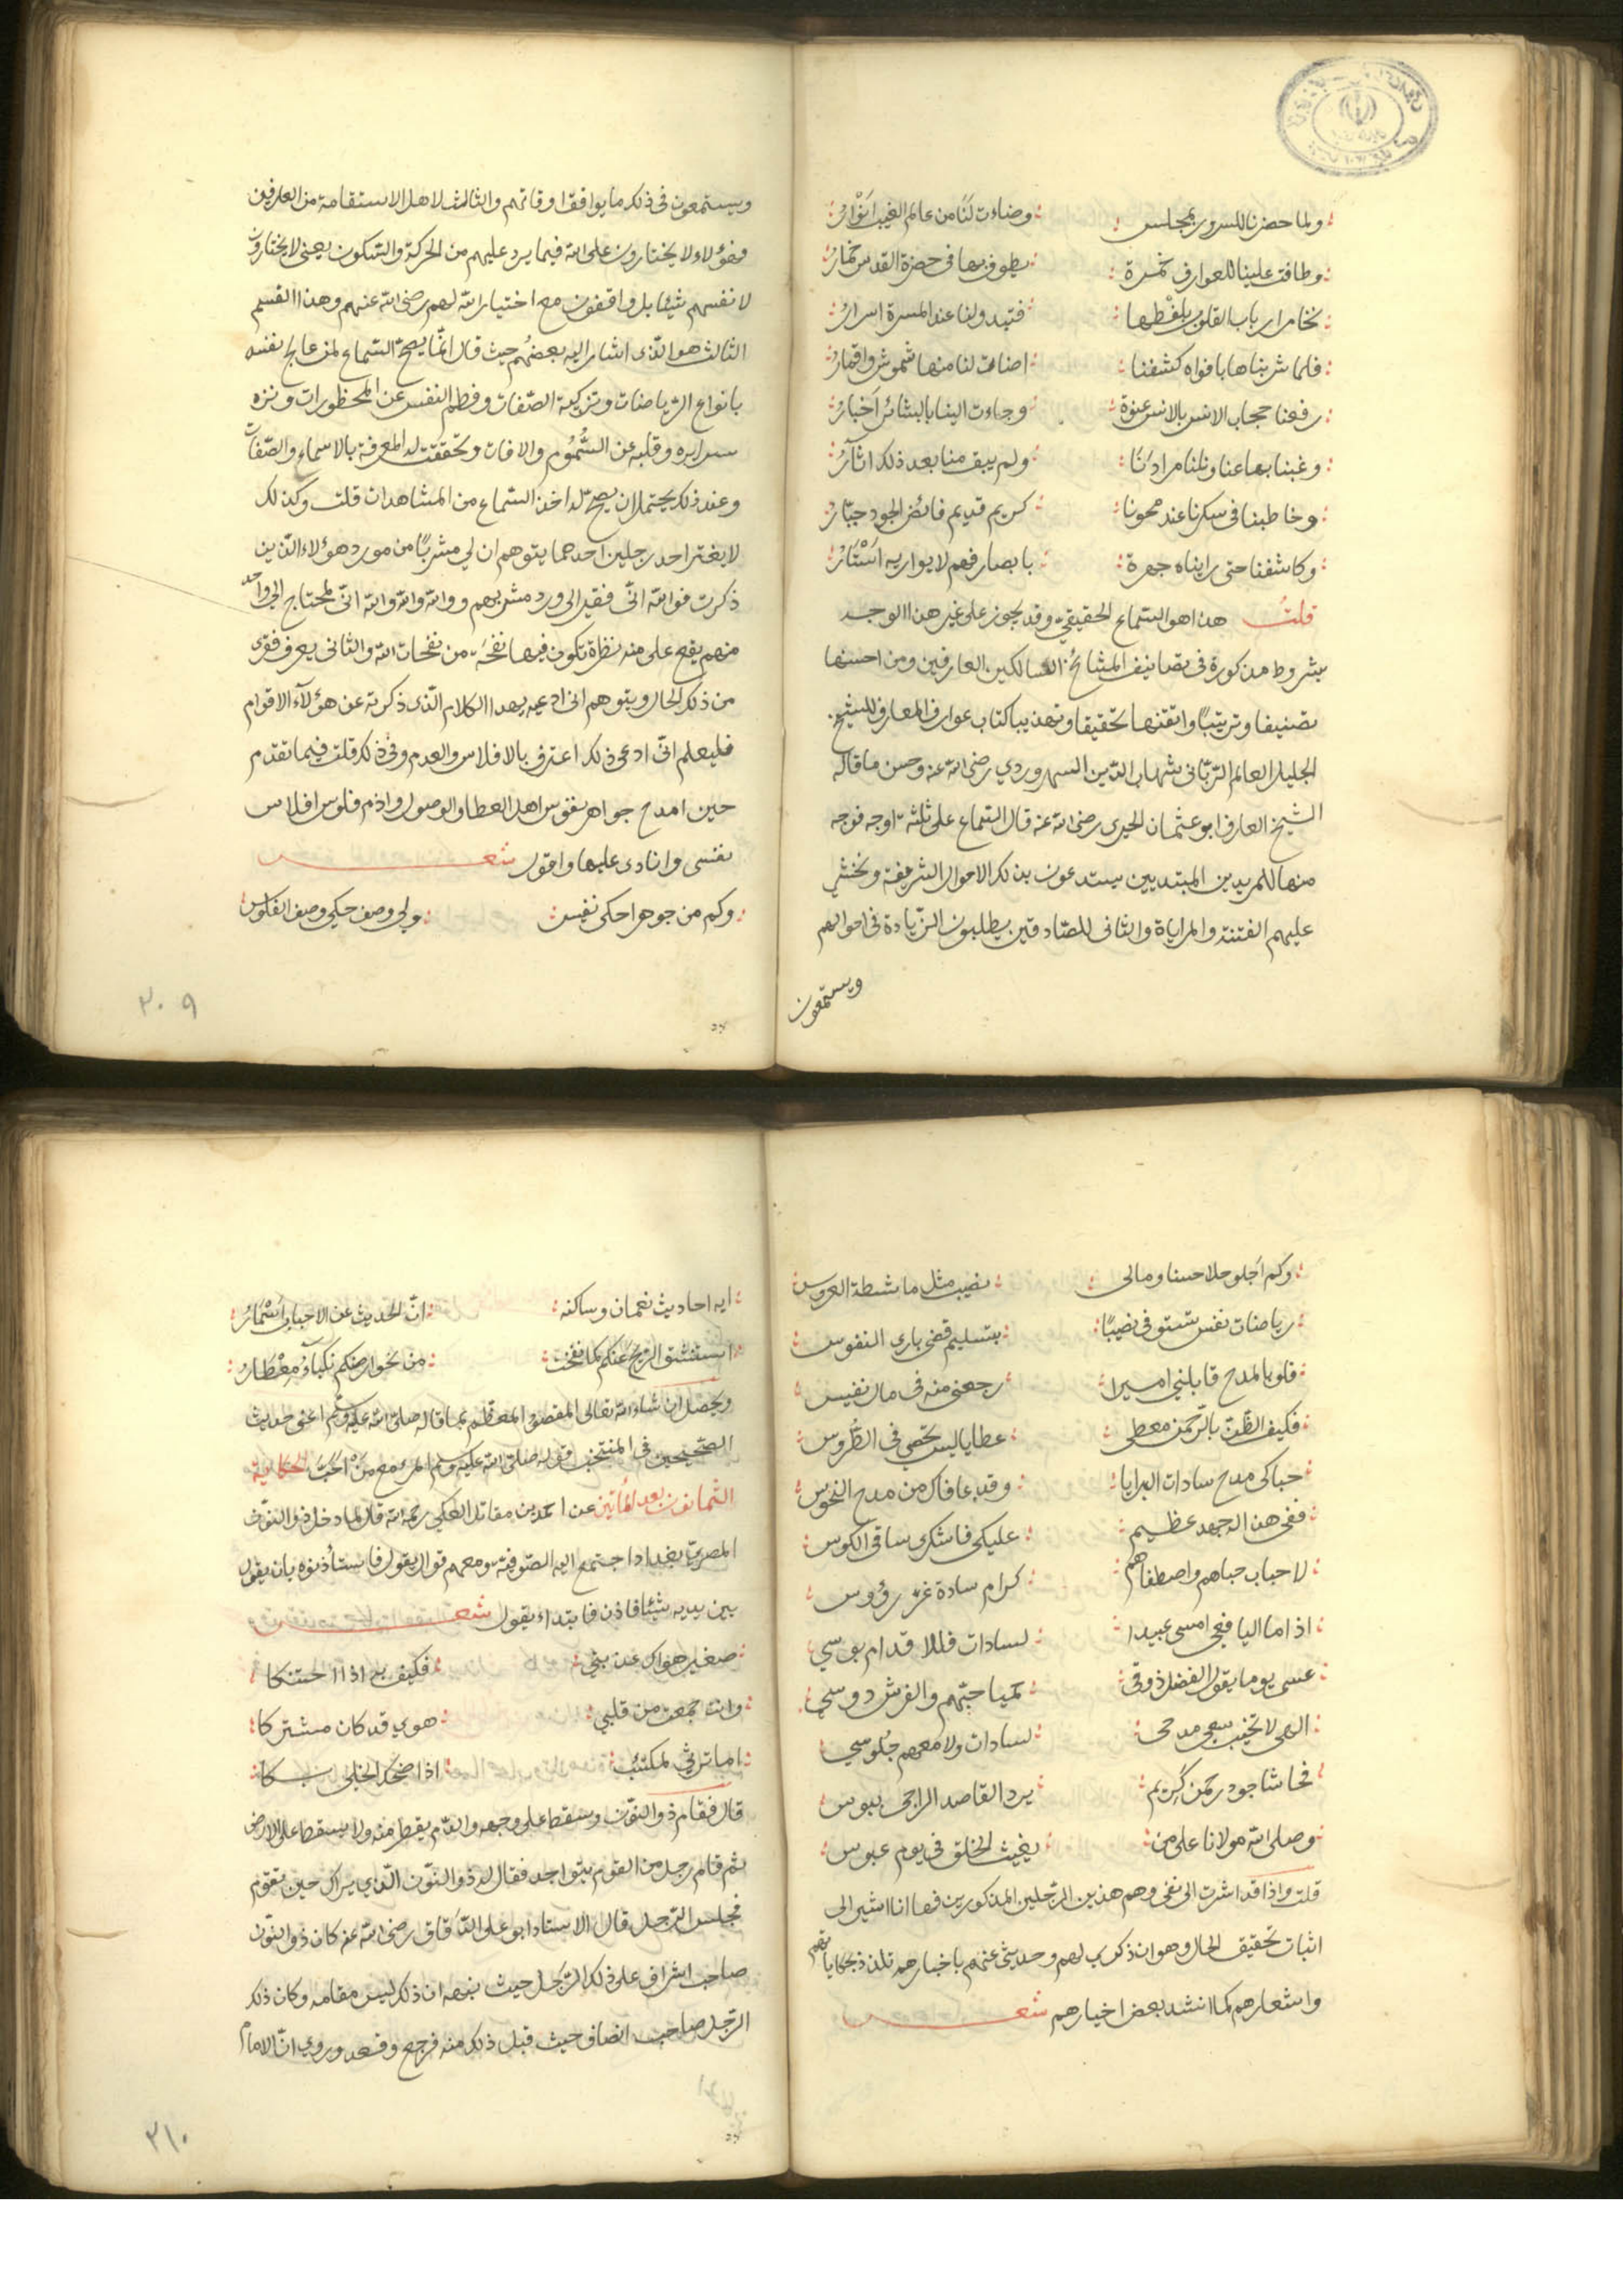 ولما حضرنا للسرور بمجلس : وضاءت لنا من عالم الغيب انوار
وطافت علينا للعوارف خمرة : يطوف بها في حضرة القدس خمار
تخامر ارباب القلوب بلفظها : فتبدو لنا عند المسرة اسرار
فلما شربناها بافواه كشفنا : اضاءت لنا منها شموش واقمار
رفعنا حجاب الانس بالانس عنوة : وجاءت الينا بالبشائر اخبار
وغبنا بها عنا ونلنا مرادنا : ولم يبق منا بعد ذلك اثار
وخاطبنا في سكرنا عند محونا : كريم قديم فائض الجود جبار
وكاشفنا حتى رايناه جهرة : بابصار فهم لا يواريه استار
قلت هذا هو السماع الحقيقي وقد يجوز على غير هذا الوجه
بشروط مذكورة في تصانيف المشائخ السالكين العارفين ومن احسنها
تصنيفا وترتيبا واتقنها تحقيقا وتهذيبا كتاب عوارف المعارف للشيخ
الجليل العالم الرباني شهاب الدين السهروردي رضي الله عنه وحسن ما قاله
الشيخ العارف ابو عثمان الحيري رضي الله عنه قال السماع على ثلثة اوجه فوجه
منها للمريدين المبتديين يستدعون بذلك الاحوال الشريفة ونخشى
عليهم الفتنة والمراياة والثاني للصادقين يطلبون الزيادة في احوالهم
ويستمعون
ويستمعون في ذلك ما يوافق اوقاتهم والثالث لاهل الاستقامة من العارفين
فهؤلاء لا يختارون على الله فيما يرد عليهم من الحركة والسكون يعني لا يختارون
لانفسهم شيئا بل واقفون مع اختيار الله لهم رضي الله عنهم وهذا القسم
الثالث هو الذي اشار اليه بعضهم حيث قال انما يصح السماع لمن عالج نفسه
بانواع الرياضات وتزكية الصفات وفطم النفس عن المحظورات ونزه
سرايره وقلبه عن السموم والافات وتحققت له المعرفة بالاسماء والصفات
وعند ذلك يحتمل ان يصح له اخذ السماع من المشاهدات قلت وكذلك
لا يغتر احد رجلين احدهما يتوهم ان لي مشربا من مورد هؤلاء الذين
ذكرت فوالله اني فقير الى ورد مشربهم ووالله والله والله اني لمحتاج الى واحد
منهم يقع على منه نظرة تكون فيها نفخة من نفحات الله والثاني يعرف فقرى
من ذلك الحال ويتوهم اني ادعيه بهذا الكلام الذي ذكرته عن هؤلاء الاقوام
فليعلم اني ادعى ذلك اعترف بالافلاس والعدم وفي ذلك قلت فيما تقدم
حين امدح جواهر نفوس اهل العطا والوصول واذم فلوس افلاس
نفسي وانادى عليها واقول شعر
وكم من جوهر احكى نفيس : ولي وصف حكى وصف الفلوس
۳۰۹
وكم اجلو حلا حسنا ومالي : نصيب مثل ماشطة العروس
رياضات نفس شتوفي نصيبا : بتسليم قضى بارى النفوس
فلو بالمدح قابلني اميرا : رجعني منه في مال نفيس
فكيف الظن بالرحمن معطى : عطايا ليس تحصى في الطروس
حباكى مدح سادات البرايا : وقد عافاك من مدح النحوس
ففي هذا له جهد عظيم : عليكى فاشكرى ساقى الكوس
لاحباب حباهم واصطفاهم : كرام سادة غر رؤوس
اذا ما اليافعي امسى عبيدا : لسادات فللاقدام بوسي
عسى يوما يقول الفضل ذوقى : حبهم والفرش دوسي
الهى لا تخيب سعى مدحى : لسادات ولا معهم جلوسي
فحاشا جود رحمن كريم : يرد القاصد الراجى ببوس
وصلى الله مولانا على من : يغيث الخلق في يوم عبوس
قلت واذا قد اشرت الى نفي وهم هذين الرجلين المذكورين فها انا اشير الى
اثبات تحقيق الحال وهو ان ذكرى لهم وحديثي عنهم باخبارهم تلذذ بحكاياتهم
واشعارهم كما انشد بعض اخيارهم شعر
ايه احاديث نعمان وساكنه : ان الحديث عن الاحباب اسمار
استنشق الريح عنكم كلما نفحت : من نحو ارضكم نكباء معطار
ويحصل ان شاء الله تعالى المقصود المعظم بما قاله صلى الله عليه وسلم اعنى حديث
الصحيحين في المنتخب قوله صلى الله عليه وسلم المرء مع من احب الحكاية
الثمانون بعد المأتين عن احمد بن مقاتل العكي رحمه الله قال لما دخل ذوالنون
المصري بغداد اجتمع اليه الصوفية ومعهم قوال يقول فاستأذنوه بان يقول
بين يديه شيئا فاذن فابتداء يقول شعر
صغير هواك عذبني : فكيف به اذا احتنكا
وانت جمعت من قلبي : هوي قد كان مشتركا
اما ترثي لمكتئب : اذا ضحك الخلى بكا
قال فقام ذوالنون وسقط على وجهه والدم يقطر منه ولا يسقط على الارض
ثم قام رجل من القوم يتواجد فقال له ذوالنون الذي يراك حين تقوم
فجلس الرجل قال الاستاد ابو على الدقاق رضي الله عنه كان ذوالنون
صاحب اشراف على ذلك الرجل حيث نبهه ان ذلك ليس مقامه وكان ذلك
الرجل صاحب انصاف حيث قبل ذلك منه فرجع وقعد وروى ان الامام
۳۱۰